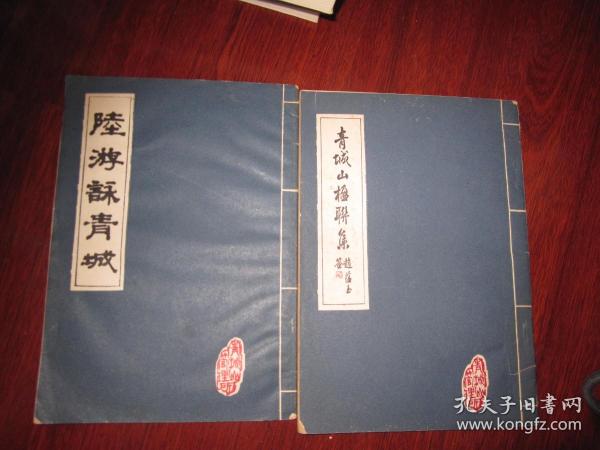 陸游詠青城
青城山楹聯集
趙蘊玉
签
孔夫子旧书网
www.kongfz.com